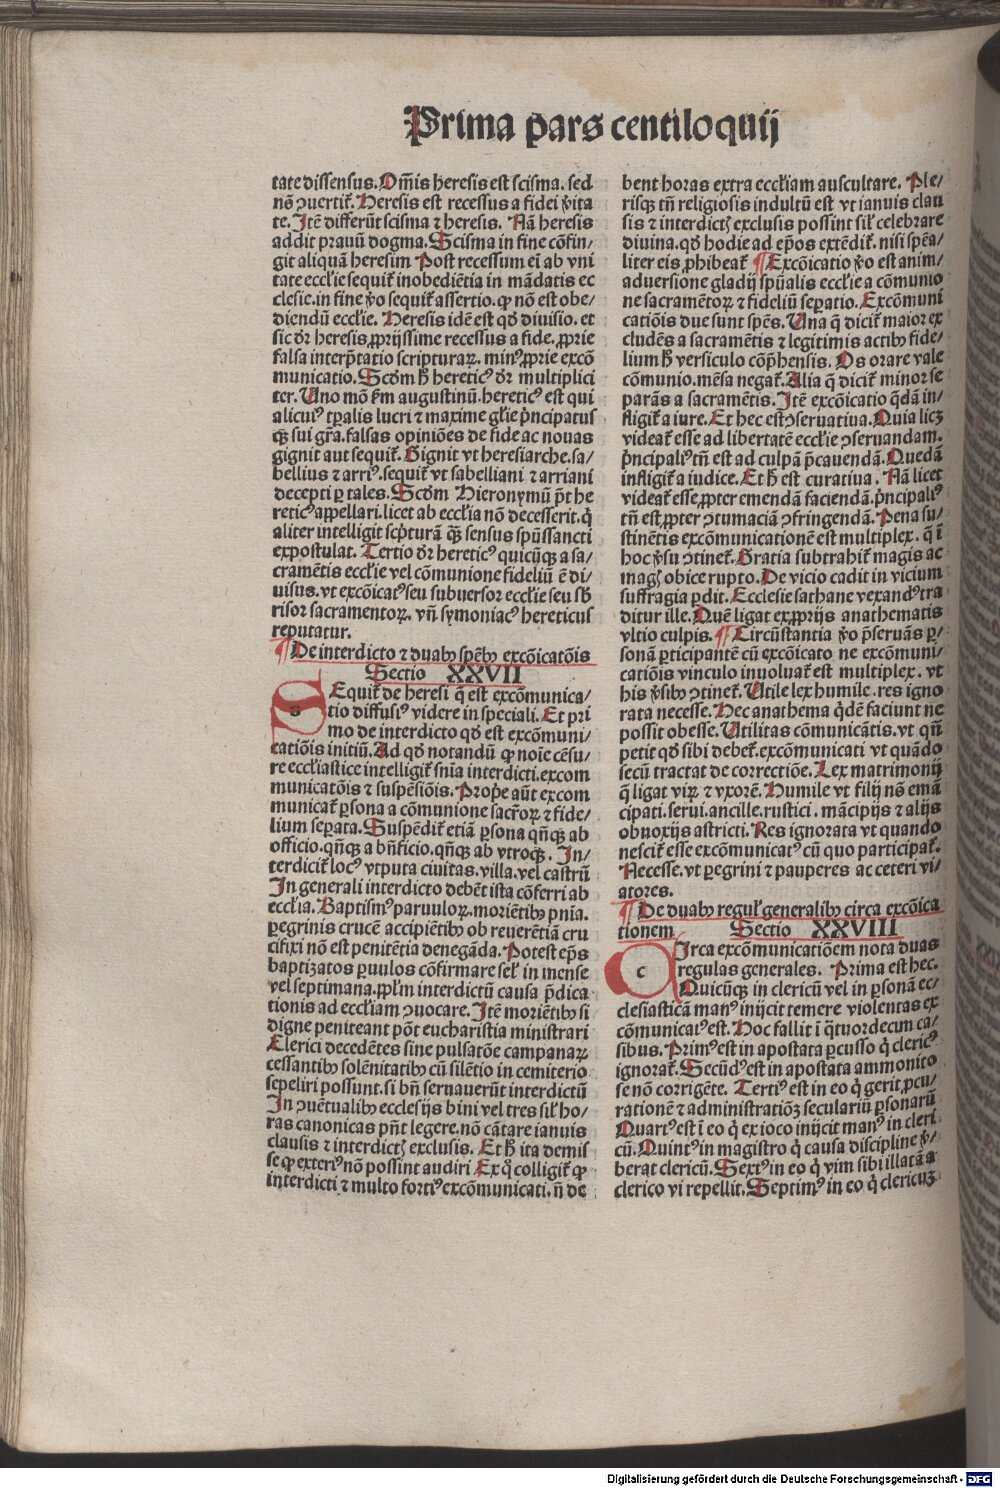 Prima pars centiloquij
tate dissensus. Om̄is heresis est scisma. sed
nō ↄuertit᷑. Heresis est recessus a fidei v̓ita
te. Itē differūt scisma ⁊ heresis. Nā heresis
addit prauū dogma. Scisma in fine cōfin/
git aliquā heresim Post recessum ei᷑ ab vni
tate eccl̓ie sequit᷑ inobediētia in mādatis ec
clesie. in fine v̓o sequit᷑ assertio. ꝙ nō est obe/
diendū eccl̓ie. Heresis idē est qd̓ diuisio. et
sic dr̓ heresis ꝓprijssime recessus a fide. ꝓprie
falsa interp̄tatio scripturaꝝ. minꝰ ꝓprie excō
municatio. Scd̓m h̓ hereticꝰ dr̓ multiplici
ter. Uno mō ẜm augustinū. hereticꝰ est qui
alicuiꝰ tp̄alis lucri ⁊ maxime gl̓ie p̓ncipatus
qꝫ sui gr̄a. falsas opiniōes de fide ac nouas
gignit aut sequit᷑. Gignit vt heresiarche. sa/
bellius ⁊ arriꝰ. sequit᷑ vt sabelliani ⁊ arriani
decepti ꝑ tales. Scd̓m Hieronymū p̄t he
reticꝰ appellari. licet ab eccl̓ia nō decesserit. q̓
aliter intelligit sc̓pturā qꝫ̄ sensus sp̄ussancti
expostulat. Tertio dr̓ hereticꝰ quicūqꝫ a sa/
cramētis eccl̓ie vel cōmunione fideliū ē di/
uisus. vt excōicatꝰ seu subuersor eccl̓ie seu sb̓
risor sacramentoꝝ. vn̄ symoniacꝰ hereticus
reputatur.
¶ De interdicto ⁊ duabꝰ spēbꝰ excōicatōis
Sectio XXVII
SEquit᷑ de heresi q̄ est excōmunica/
tio diffusiꝰ videre in speciali. Et pri
mo de interdicto qd̓ est excōmuni/
catiōis initiū. Ad qd̓ notandū ꝙ noīe cēsu/
re eccl̓iastice intelligit᷑ sn̄ia interdicti. excom
municatōis ⁊ suspēsiōis. Prop̓e aūt excom
municat᷑ ꝑsona a cōmunione sacr̄oꝝ ⁊ fide/
lium seꝑata. Suspēdit᷑ etiā ꝑsona qn̄qꝫ ab
officio. qn̄qꝫ a bn̄ficio. qn̄qꝫ ab vtroqꝫ. In/
terdicit᷑ locꝰ vtputa ciuitas. villa. vel castrū
In generali interdicto debēt ista cōferri ab
eccl̓ia. Baptismꝰ paruuloꝝ. moriētibꝰ pn̄ia.
ꝑegrinis crucē accipiētibꝰ ob reuerētiā cru
cifixi nō est penitētia denegāda. Potest ep̄s
baptiȝatos ꝑuulos cōfirmare sel̓ in mense
vel septimana. ꝓpl̓m interdictū causa p̄dica
tionis ad eccl̓iam ↄuocare. Itē moriētibꝰ si
digne peniteant pōt eucharistia ministrari
Clerici decedētes sine pulsatōe campanaꝝ
cessantibꝰ solēnitatibꝰ cū silētio in cemiterio
sepeliri possunt. si bn̄ seruauerūt interdictū
In ↄuētualibꝰ ecclesijs bini vel tres sil̓ ho/
ras canonicas pn̄t legere. nō cātare ianuis
clausis ⁊ interdictꝭ exclusis. Et h̓ ita demis
se ꝙ exteriꝰ nō possint audiri Ex q̊ colligit᷑ ꝙ
interdicti ⁊ multo fortiꝰ excōmunicati. n̄ de
bent horas extra eccl̓iam auscultare. Ple/
risqꝫ tn̄ religiosis indultū est vt ianuis clau
sis ⁊ interdictꝭ exclusis possint sil̓ celebrare
diuina. qd̓ hodie ad ep̄os extēdit᷑. nisi spēa/
liter eis ꝓhibeat᷑ ¶ Excōicatio v̓o est anim/
aduersione gladij spūalis eccl̓ie a cōmunio
ne sacramētoꝝ ⁊ fideliū seꝑatio. Excōmuni
catiōis due sunt spēs. Una q̄ dicit᷑ maior ex
cludēs a sacramētis ⁊ legitimis actibꝰ fide/
lium h̓ versiculo cōp̓hensis. Os orare vale
cōmunio. mēsa negat᷑. Alia q̄ dicit᷑ minor se
parās a sacramētis. Itē excōicatio q̄dā in/
fligit᷑ a iure. Et hec est ↄseruatiua. Quia licꝫ
videat᷑ esse ad libertatē eccl̓ie ↄseruandam.
p̓ncipaliꝰ tn̄ est ad culpā p̄cauendā. Quedā
infligit᷑ a iudice. Et h̓ est curatiua. Nā licet
videat᷑ esse ꝓpter emendā faciendā. p̓ncipaliꝰ
tn̄ est ꝓpter ↄtumaciā ↄfringendā. Pena su/
stinētis excōmunicationē est multiplex. q̄ ī
hoc v̓su ↄtinet᷑. Gratia subtrahit᷑ magis ac
magꝭ obice rupto. De vicio cadit in vicium
suffragia ꝑdit. Ecclesie sathane vexandꝰ tra
ditur ille. Quē ligat ex ꝓprijs anathematis
vltio culpis. ¶ Circūstantia v̓o p̄seruās ꝑ/
sonā ꝑticipantē cū excōicato ne excōmuni/
catiōis vinculo inuoluat᷑ est multiplex. vt
his v̓sibꝰ ↄtinet᷑. Utile lex humile. res igno
rata necesse. Hec anathema q̓dē faciunt ne
possit obesse. Utilitas cōmunicātis. vt qn̄
petit qd̓ sibi debet᷑. excōmunicati vt quādo
secū tractat de correctiōe. Lex matrimonij
q̄ ligat viꝝ ⁊ vxorē. Humile vt filij nō emā
cipati. serui. ancille. rustici. mācipijs ⁊ alijs
obnoxijs astricti. Res ignorata vt quando
nescit᷑ esse excōmunicatꝰ cū quo participat᷑.
Necesse. vt ꝑegrini ⁊ pauperes ac ceteri vi/
atores.
¶ De duabꝰ regul̓ generalibꝰ circa excōica
tionem Sectio XXVIII
CIrca excōmunicatiōem nota duas
regulas generales. Prima est hec.
Quicūqꝫ in clericū vel in ꝑsonā ec/
clesiasticā manꝰ inijcit temere violentas ex
cōmunicatꝰ est. Hoc fallit ī q̈tuordecim ca/
sibus. Primꝰ est in apostata ꝑcusso q̓ clericꝰ
ignorat᷑. Secūdꝰ est in apostata ammonito
se nō corrigēte. Tertiꝰ est in eo q̓ gerit ꝓcu/
rationē ⁊ administratiōȝ seculariū ꝑsonarū
Quartꝰ est ī eo q̓ ex ioco inijcit manꝰ in cleri
cū. Quintꝰ in magistro q̓ causa discipline v̓/
berat clericū. Sextꝰ in eo q̓ vim sibi illatā a
clerico vi repellit. Septimꝰ in eo q̓ clericuȝ
Digitalisierung gefördert durch die Deutsche Forschungsgemeinschaft - DFG